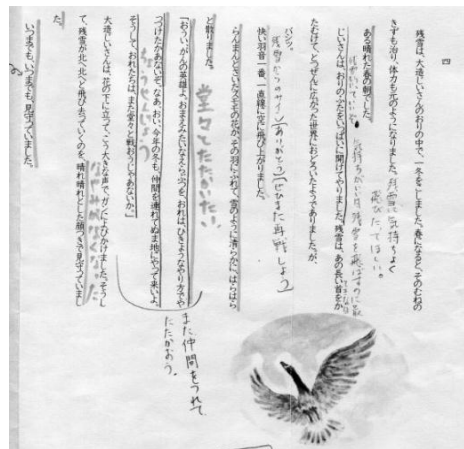 四
残雪は、大造じいさんのおりの中で、一冬をこしました。春になると、そのむねの
きずも治り、体力も元のようになりました。
残雪に気持ちよく
飛びたってほしい。
ある晴れた春の朝でした。
じいさんは、おりのふたをいっぱいに開けてやりました。残雪は、あの長い首をか
たむけて、とつぜんに広がった世界におどろいたようでありました。が、
バシッ。
快い羽音一番、一直線に空に飛び上がりました。
らんまんとさいたスモモの花が、その羽にふれて、雪のように清らかに、はらはら
と散りました。
堂々とたたかいたい。
「おうい、ガンの英雄よ。おまえみたいなえらぶつを、おれは、ひきょうなやり方でや
つつけたかあないぞ。なあ、おい。今年の冬も、仲間を連れてぬま地にやって来いよ。
そうして、おれたちは、また堂々と戦おうじゃあないか。」
ちょうせんじょう
また仲間をつれて
たたかおう。
大造じいさんは、花の下に立って、こう大きな声でガンによびかけました。そうし
て、残雪が北へ北へと飛び去っていくのを、晴れ晴れとした顔つきで見守っていまし
た。
なやみがなくなった
いつまでも、いつまでも、見守っていました。